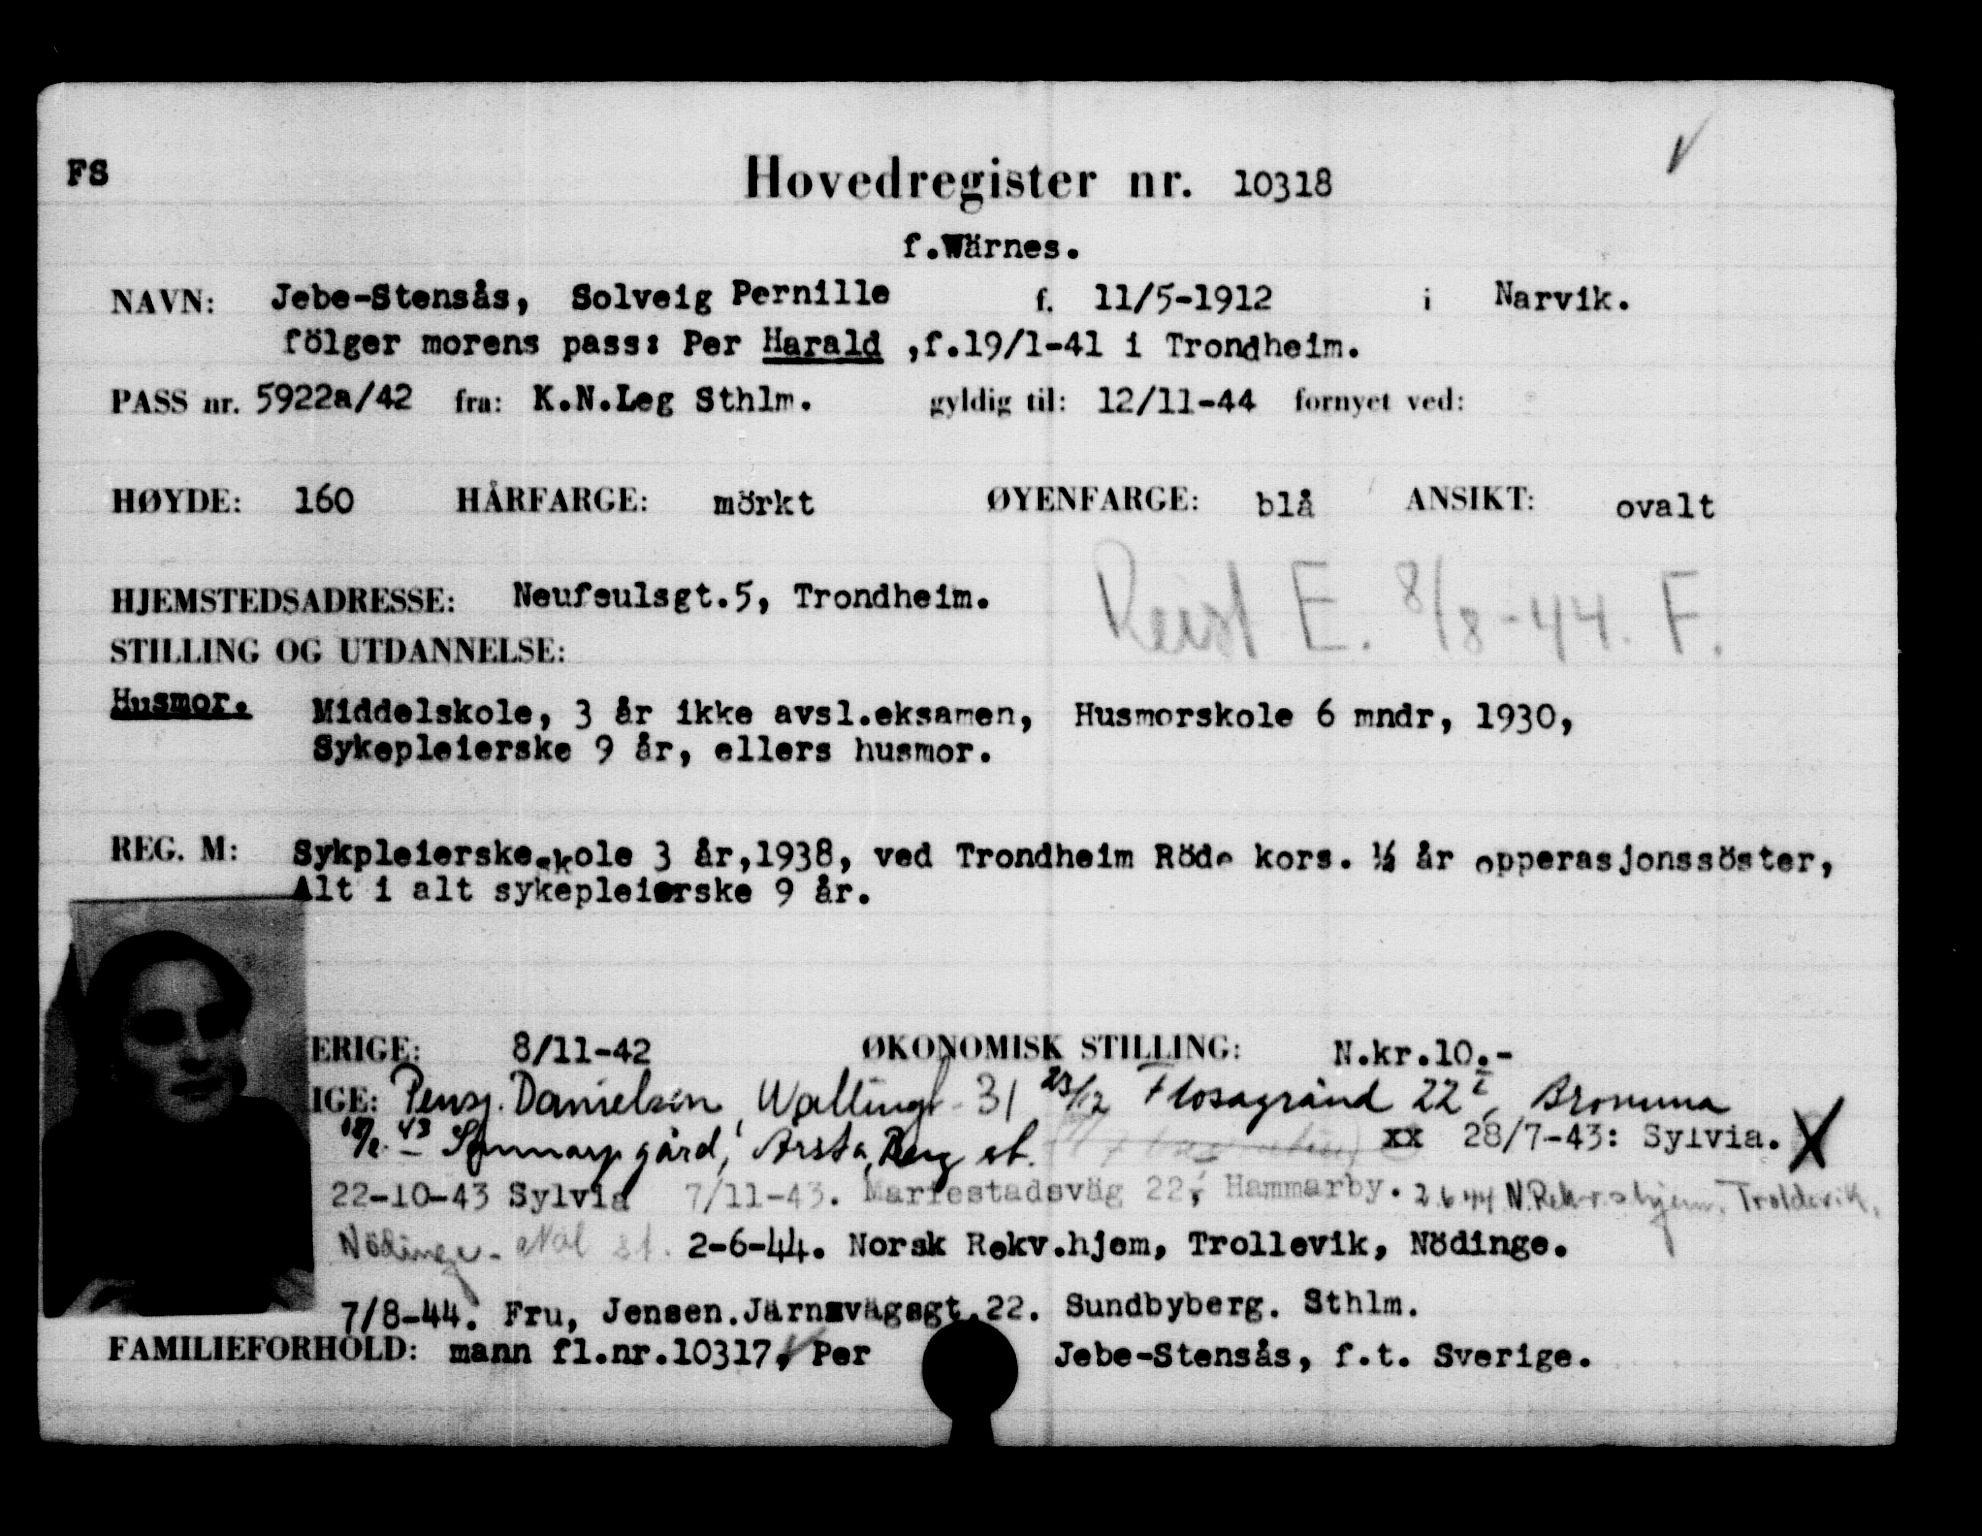 FS
Hovedregister nr. 10318
f.Wärnes.
NAVN: Jebe-Stensås, Solveig Pernille f. 11/5-1912 i Narvik.
fölger morens pass: Per Harald ,f.19/1-41 i Trondheim.
PASS nr. 5922a/42 fra: K.N.Leg Sthlm. gyldig til: 12/11-44 fornyet ved:
HØYDE: 160 HÅRFARGE: mörkt ØYENFARGE: blå ANSIKT: ovalt
Reist E. 8/8-44. F.
HJEMSTEDSADRESSE: Neufeulsgt.5, Trondheim.
STILLING OG UTDANNELSE:
Husmor. Middelskole, 3 år ikke avsl.eksamen, Husmorskole 6 mndr, 1930,
Sykepleierske 9 år, ellers husmor.
REG. M: Sykpleierskeskole 3 år,1938, ved Trondheim Röde kors. ½ år opperasjonssöster,
Alt i alt sykepleierske 9 år.
ERIGE: 8/11-42 ØKONOMISK STILLING: N.kr.10.-
IGE: Pensj. Danielsen, Wallingt. 31 23/12 Flosagränd 22 Bromma
43 gård, Årsta, Berg st. xx 28/7-43: Sylvia. X
22-10-43 Sylvia 7/11-43. Mariestadsväg 22, Hammarby. 2.6.44 N. Troldevik,
Nödinge - Nol st. 2-6-44. Norsk Rekv.hjem, Trollevik, Nödinge.
7/8-44. Fru, Jensen.Järnsvägsgt.22. Sundbyberg. Sthlm.
FAMILIEFORHOLD: mann fl.nr.10317, Per Jebe-Stensås, f.t. Sverige.